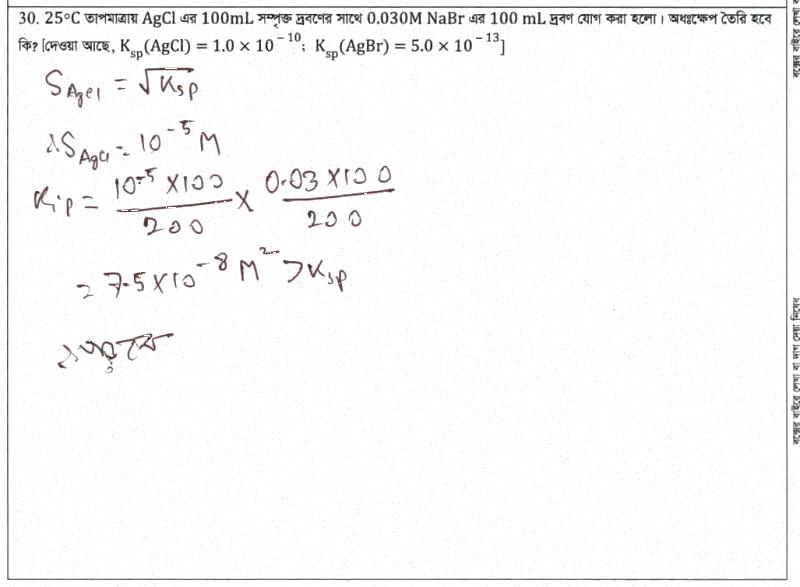 30. 25°C তাপমাত্রায় AgCl এর 100mL সম্পৃক্ত দ্রবণের সাথে 0.030M NaBr এর 100 mL দ্রবণ যোগ করা হলো। অধঃক্ষেপ তৈরি হবে
কি? [দেওয়া আছে, K_sp(AgCl) = 1.0 × 10^-10; K_sp(AgBr) = 5.0 × 10^-13]
S_AgCl = √K_sp
∴ S_AgCl = 10^-5 M
K_ip = (10^-5 × 100)/200 × (0.03 × 100)/200
= 7.5 × 10^-8 M^2 > K_sp
বক্সের বাইরে লেখা বা দাগ দেয়া নিষেধ